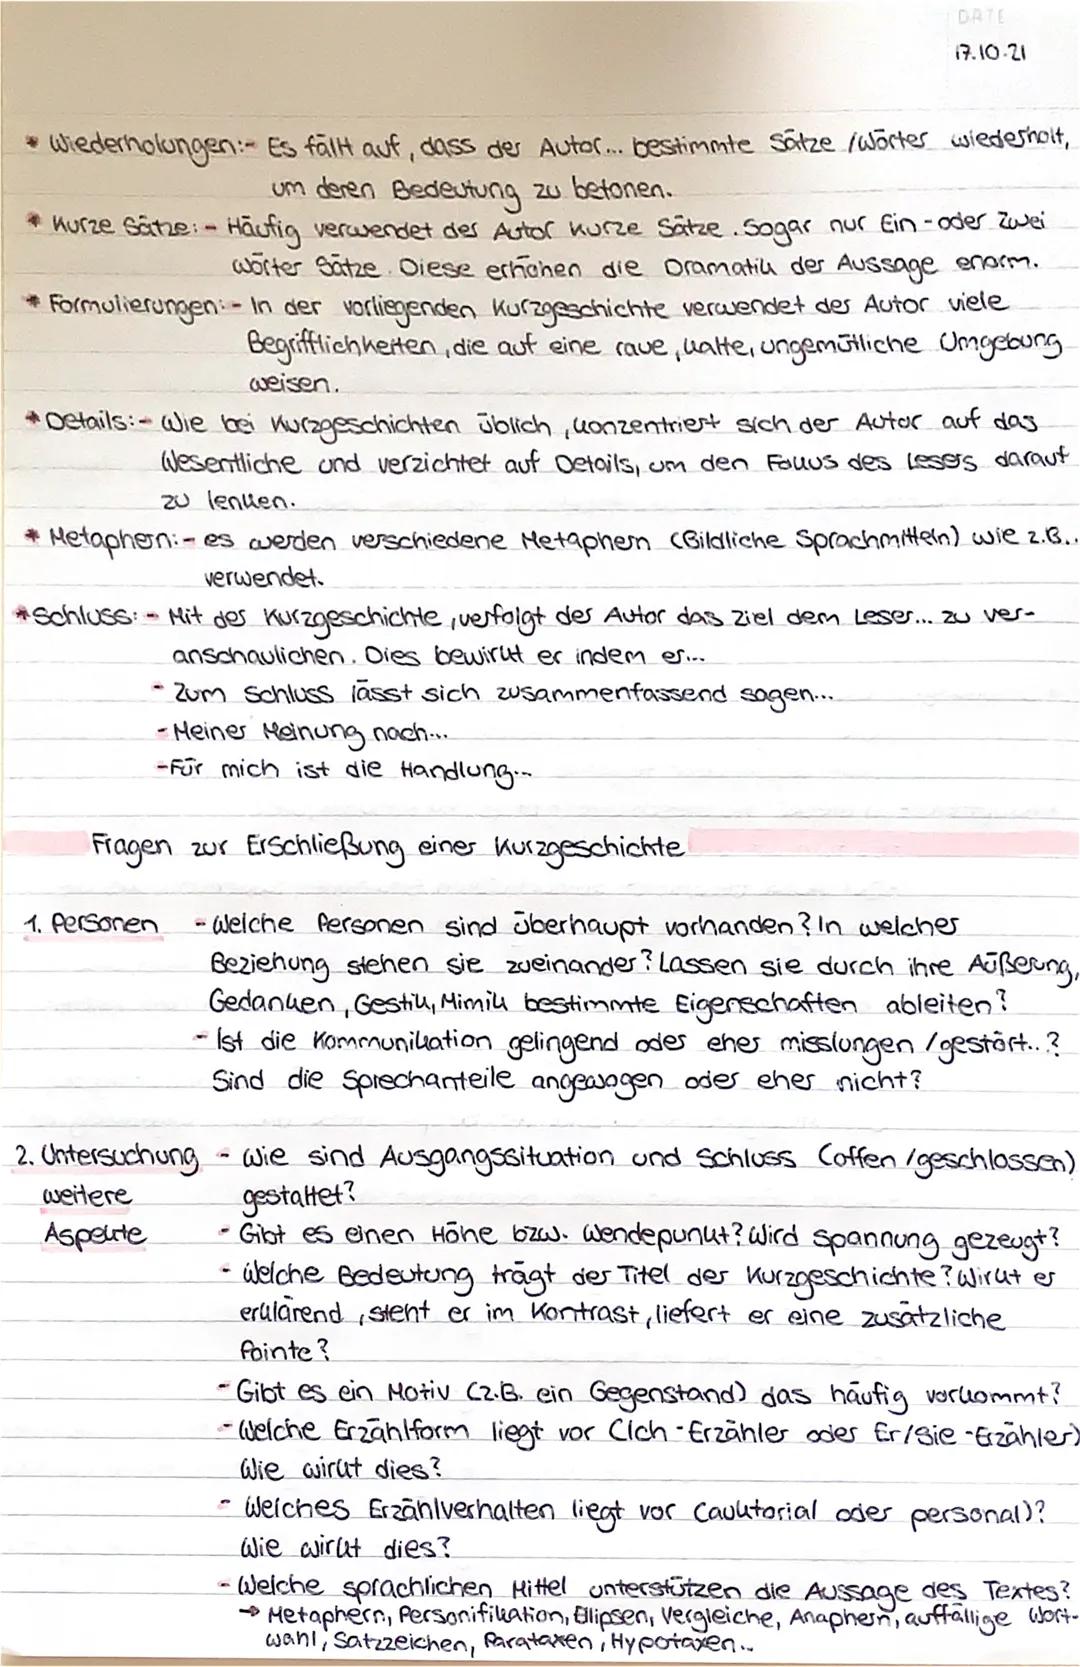 DATE
17.10.21
* Wiederholungen:- Es fällt auf, dass der Autor... bestimmte Sätze /Wörter wiederholt,
um deren Bedeutung zu betonen.
* Kurze Sätze:- Häufig verwendet der Autor kurze Sätze. Sogar nur Ein-oder Zwei
Wörter Sätze. Diese erhöhen die Dramatik der Aussage enorm.
* Formulierungen:- In der vorliegenden Kurzgeschichte verwendet der Autor viele
Begrifflichkeiten, die auf eine raue, kalte, ungemütliche Umgebung
weisen.
* Details:- Wie bei Kurzgeschichten üblich, konzentriert sich der Autor auf das
Wesentliche und verzichtet auf Details, um den Fokus des Lesers darauf
zu lenken.
* Metaphern:- es werden verschiedene Metaphern (Bildliche Sprachmitteln) wie z.B..
verwendet.
* Schluss:- Mit der Kurzgeschichte, verfolgt der Autor das Ziel dem Leser... zu ver-
anschaulichen. Dies bewirkt er indem er...
- Zum Schluss lässt sich zusammenfassend sagen...
- Meiner Meinung nach...
- Für mich ist die Handlung...
Fragen zur Erschließung einer Kurzgeschichte
1. Personen - Welche Personen sind überhaupt vorhanden? In welcher
Beziehung stehen sie zueinander? Lassen sie durch ihre Äußerung,
Gedanken, Gestik, Mimik bestimmte Eigenschaften ableiten?
- Ist die Kommunikation gelingend oder eher misslungen /gestört..?
Sind die Sprechanteile angewogen oder eher nicht?
2. Untersuchung - Wie sind Ausgangssituation und Schluss (offen/geschlossen)
weitere gestaltet?
Aspekte - Gibt es einen Höhe bzw. Wendepunkt? Wird Spannung gezeugt?
- Welche Bedeutung trägt der Titel der Kurzgeschichte? Wirkt er
erklärend, steht er im Kontrast, liefert er eine zusätzliche
Pointe?
- Gibt es ein Motiv (z.B. ein Gegenstand) das häufig vorkommt?
- Welche Erzählform liegt vor (Ich-Erzähler oder Er/Sie-Erzähler)
Wie wirkt dies?
- Welches Erzählverhalten liegt vor (auktorial oder personal)?
Wie wirkt dies?
- Welche sprachlichen Mittel unterstützen die Aussage des Textes?
→ Metaphern, Personifikation, Ellipsen, Vergleiche, Anaphern, auffällige Wort-
wahl, Satzzeichen, Parataxen, Hypotaxen...